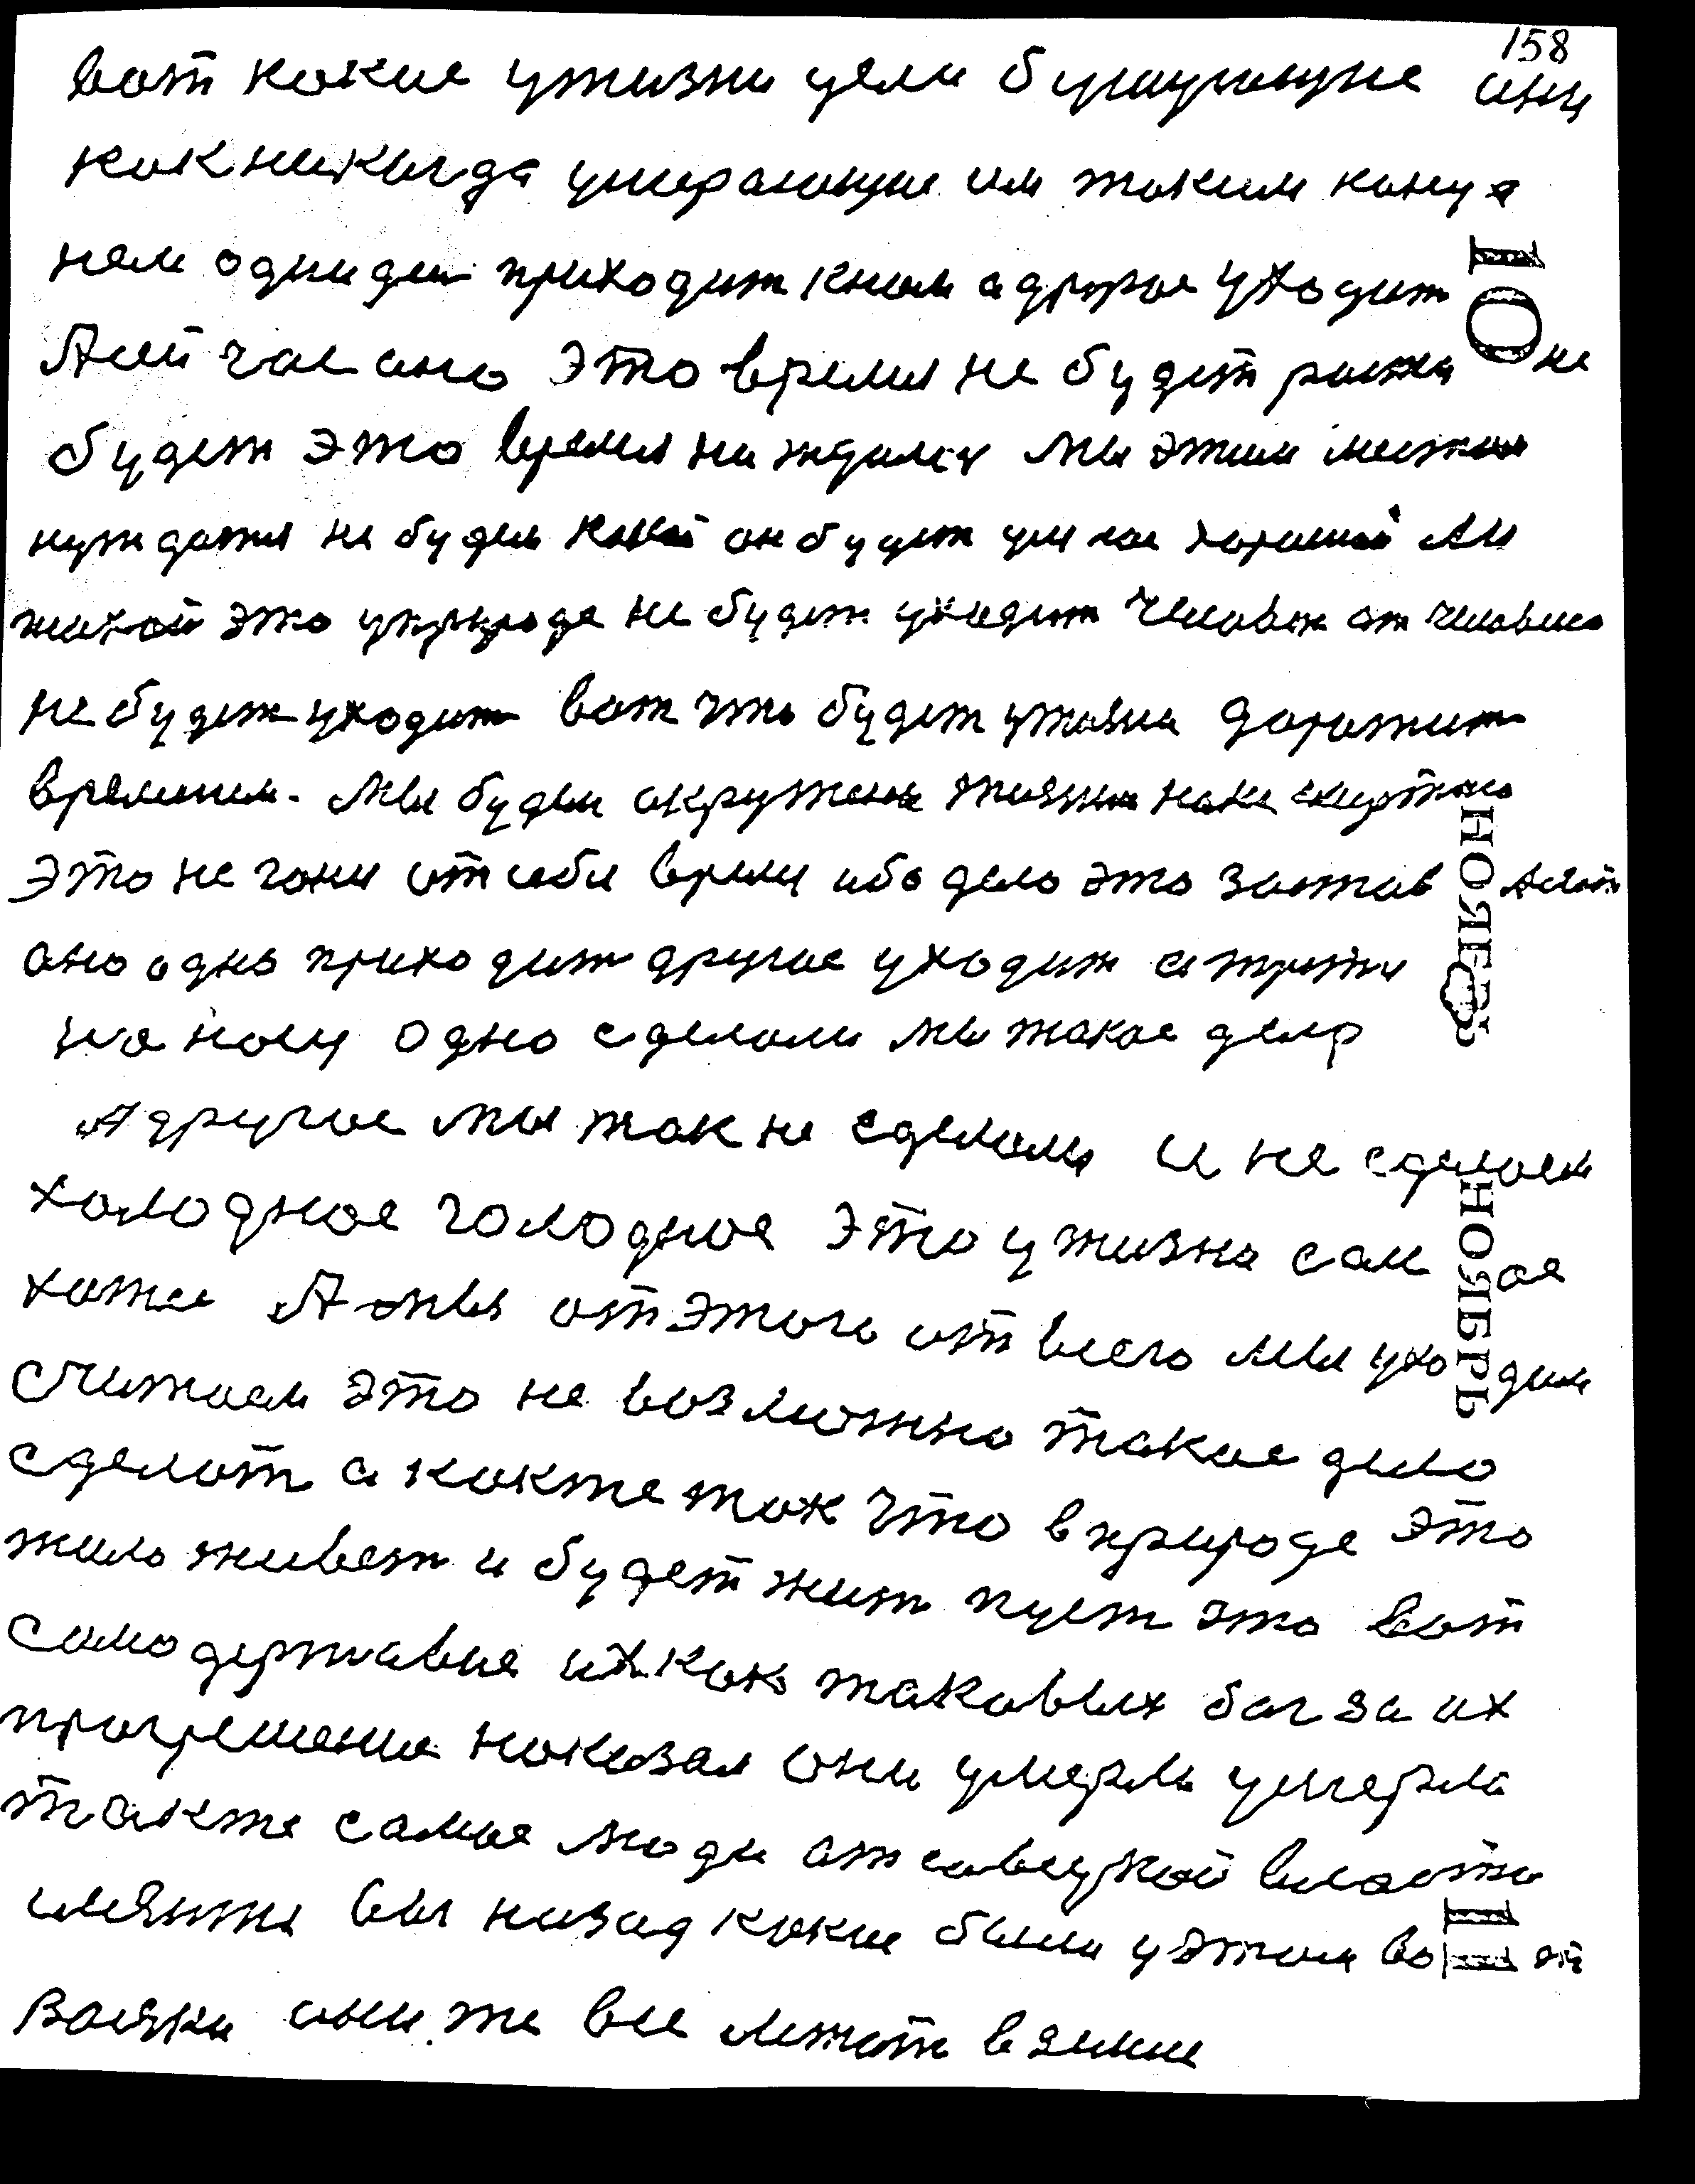 158
вот какие ужизни цели бушующие они
как никогда умирающие им таким конца
нам одни дни приходит кнам а другое уходит
А сей час оно это время не будет рожа не
будет это время на ждалсу мы этим местом
нуждатся не будем какой он будет у нас хороший ли
плохой это уприроде не будет уходит человек от человека
не будет уходит вот что будет ужизни даражит
временем. Мы будем окружены жизни
это не гони от себя время ибо дело это застав
оно одно приходит другое уходит а трети
на одно сделали мы такое дело
А другое мы так не сделали и не сделаем
холодное голодное это у жизни сам ое
А мы от этого от всего мы ухо дим
считаем это не возможно такое дело
сделат а какже так что в природе это
жило живет и будет жит пуст это вот
само державие их как таковых бог за их
прогрешение наказал они умерли умерли
также самое люди от совецкой власти
вы назад какие были уэтом во
вояки они же все лежат в земле
Ю
НОЯБРЬ
НОЯБРЬ
П